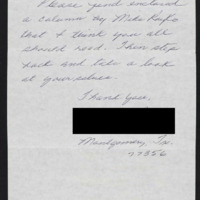 Please find enclosed
a column by Mike Royko
that I think you all
should read. Then step
back and take a look
at yourselves.
Thank you,
Montgomery, Tx.
77356